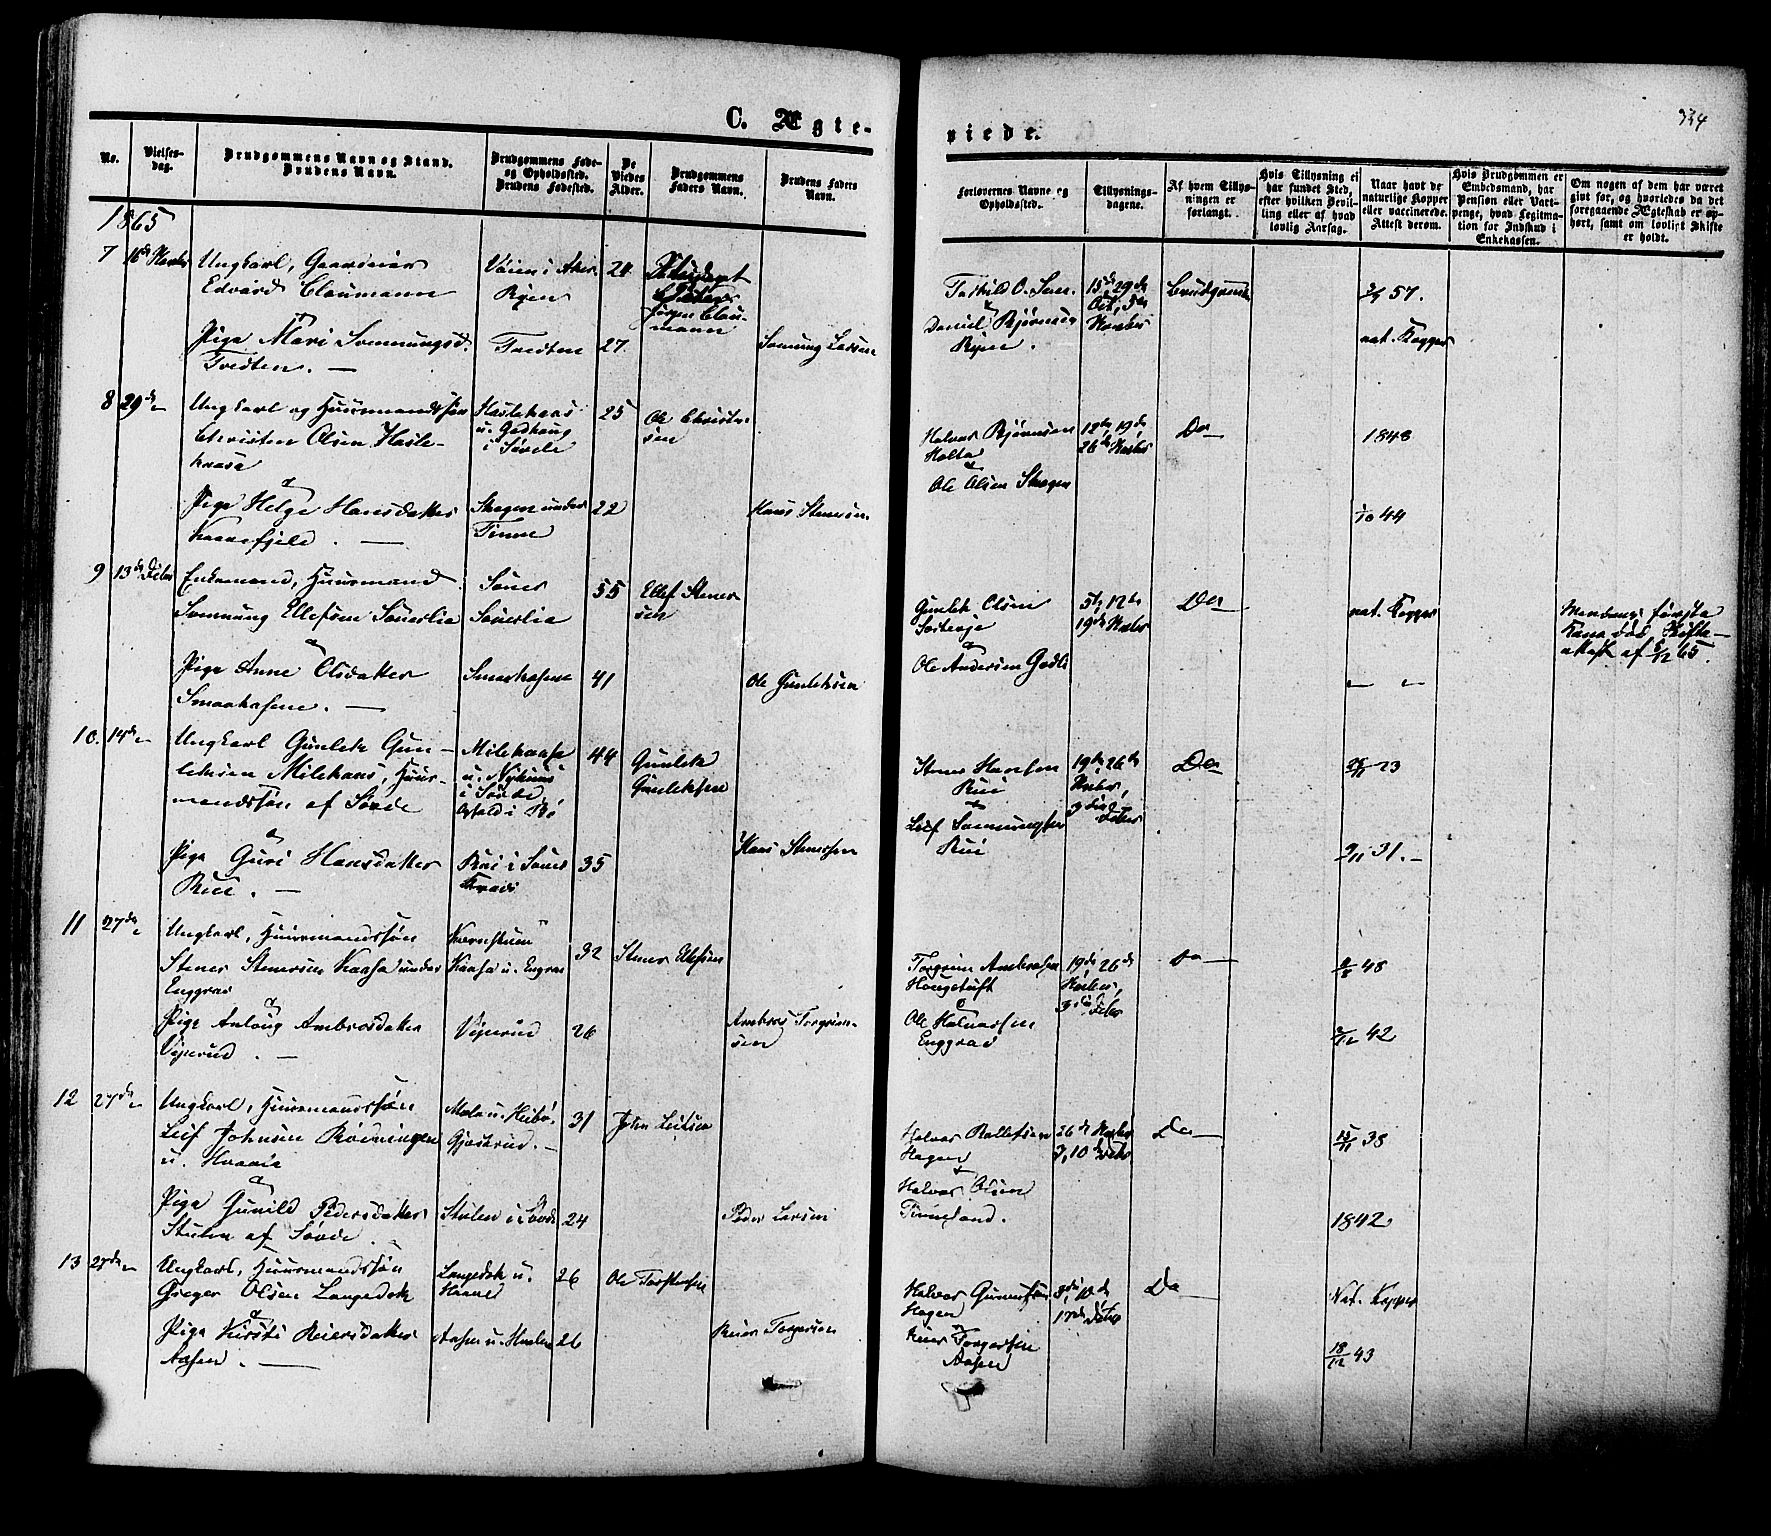 C. Ægte-
viede.
324
No.
Vielses-
dag.
Brudgommens Navn og Stand.
Brudens Navn.
Brudgommens Føde-
og Opholdssted.
Brudens Fødested.
De
Viedes
Alder.
Brudgommens
Faders Navn.
Brudens Faders
Navn.
Forlovernes Navne og
Opholdssted.
Tillysnings-
dagene.
Af hvem Tillys-
ningen er
forlangt.
Hvis Tillysning ei
har fundet Sted,
efter hvilken Bevil-
ling eller af hvad
lovlig Aarsag.
Naar havt de
naturlige Kopper
eller vaccinerede.
Attest derom.
Hvis Brudgommen er
Embedsmand, har
Pension eller Vart-
penge, hvad Legitma-
tion for Indskud i
Enkekassen.
Om nogen af dem har været
givt før, og hvorledes da det
foregaaende Ægteskab er op-
hørt, samt om lovligt Skifte
er holdt.
1865
7 16de Novbr Ungkarl, Gaardeier
Edvard Claumann
Vøien i Aker
Ryen
24
Jørgen Clau-
mann
Daniel Bjørnsen
Ryen.
15de, 29de
Oct, 5te
Novbr
57.
Pige Mari Sonnungsd.
Tvedten. —
Tvedten
27.
Sonnung Larsen
nat. Kopper
8 29de Ungkarl og Huusmandssøn
Christen Olsen Hasle-
kaasa
i Sovde
25
Ole Christen-
sen
Halvor Bjørnsen
Holta
&
Ole Olsen Skogen
12te, 19de
26de Novbr
Do
1848
Pige Helge Hansdatter
Kaasefjeld. —
Skogen under
Tinne
22
Hans Stenersen
1/10 44
9 13de Decbr Enkemand, Huusmand
Sonnung Ellefsen Sønerlia
Søner
Sønerlia
55
Ellef Stener
sen
Gunlek Olsen
&
Ole Andersen
5te, 12te
19de Novbr
Do
nat. Kopper
Mandens første
Kone død Skifte-
attest af 5/12 65.
Pige Anne Olsdatter
41
Ole Gunleksen
10. 14de Ungkarl Gunlek Gun-
leksen Milekaas, Huus-
mandssøn af Sovde
Milekaasa
i Sovde
Ophold i Bø
44
Gunlek
Gunleksen
Stener Hansen
Rui
&
Leif Sonnungsen
Rui
19de, 26de
Novbr,
3die Decbr
Do
23
&
Pige Guri Hansdatter
Rui. —
Rui i Søner
35
Hans Stenersen
9/11 31. —
11 27de Ungkarl, Huusmandssøn
Stener Stenersen Kaasa under
Enggrav
Kaasa u. Enggrav
32
Stener Ellefsen
Torgrim Ambrosen
Haugetuft
&
Ole Halvorsen
Enggrav
19de 26de
Novbr,
3die Decbr
Do
48
&
Pige Anlaug Ambrosdatter
Viperud. —
Viperud
26
Ambros Torgrim-
sen
42
12 27de Ungkarl, Huusmandssøn
Leif Johnsen Rødningen
Mola u. Heibø,
Gjøsterud. —
31
John Leifsen
Halvor Rollefsen
Hagen
&
Halvor Olsen
26de Novbr
3, 10de Decbr
Do
38
&
Pige Gunild Pedersdatter
Stulen af Sovde.
Stulen i Sovde
24
Peder Larsen
1842
13 28de Ungkarl, Huusmandssøn
Greger Olsen Langedok
Langedok u.
26
Ole Torstensen
Halvor Gunnufsen
Hagen
3die, 10de
17de Decbr
Do
Nat. Kopper
&
Pige Kirsti Reiersdatter
Aasen. —
26
Reier Torgersen
Reier Torgersen
Aasen
18/12 43